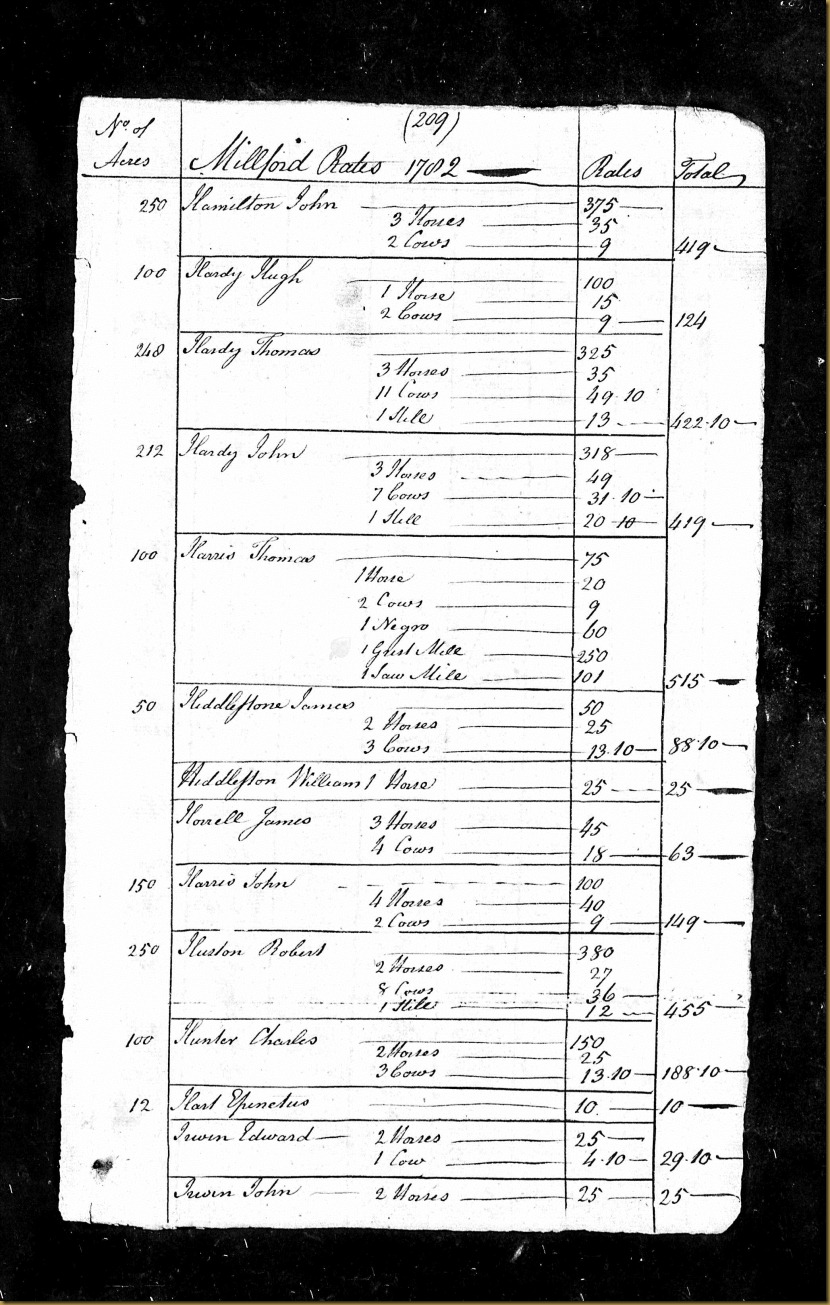 (209)
No. of
Acres Millford Rates 1782 Rates Total
250 Hamilton John 375
3 Horses 35
2 Cows 9 419
100 Hardy Hugh 100
1 Horse 15
2 Cows 9 124
248 Hardy Thomas 325
3 Horses 35
11 Cows 49.10
1 Still 13 422.10
212 Hardy John 318
3 Horses 49
7 Cows 31.10
1 Still 20 10 419
100 Harris Thomas 75
1 Horse 20
2 Cows 9
1 Negro 60
1 Grist Mill 250
1 Saw Mill 101 515
50 Hiddlestone James 50
2 Horses 25
3 Cows 13.10 88.10
Hiddleston William 1 Horse 25 25
Horrell James 3 Horses 45
4 Cows 18 63
150 Harris John 100
4 Horses 40
2 Cows 9 149
250 Huston Robert 380
2 Horses 27
8 Cows 36
1 Still 12 455
100 Hunter Charles 150
2 Horses 25
3 Cows 13.10 188.10
12 Hart Epenctus 10 10
Irwin Edward 2 Horses 25
1 Cow 4.10 29.10
Irwin John 2 Horses 25 25